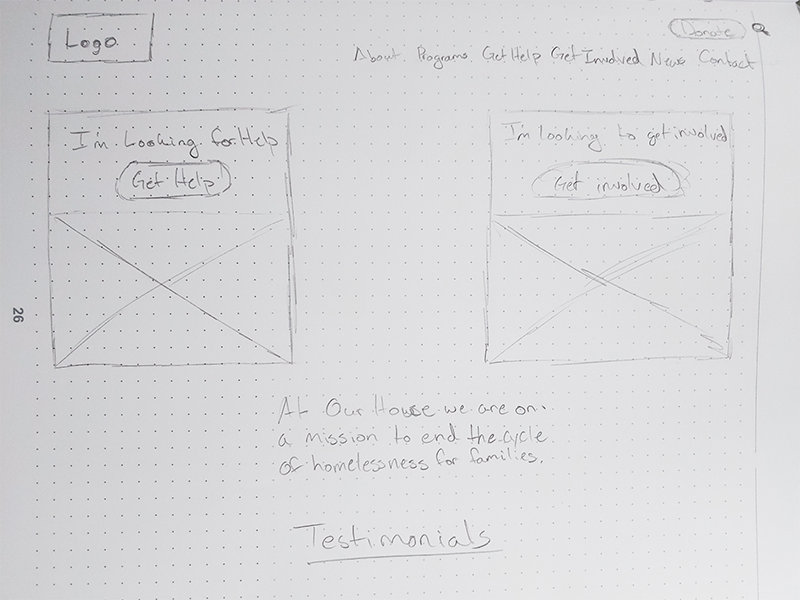 Logo
Donate
About Programs Get Help Get Involved News Contact
I'm Looking for Help
Get Help
I'm looking to get involved
Get involved
26
At Our House we are on
a mission to end the cycle
of homelessness for families.
Testimonials